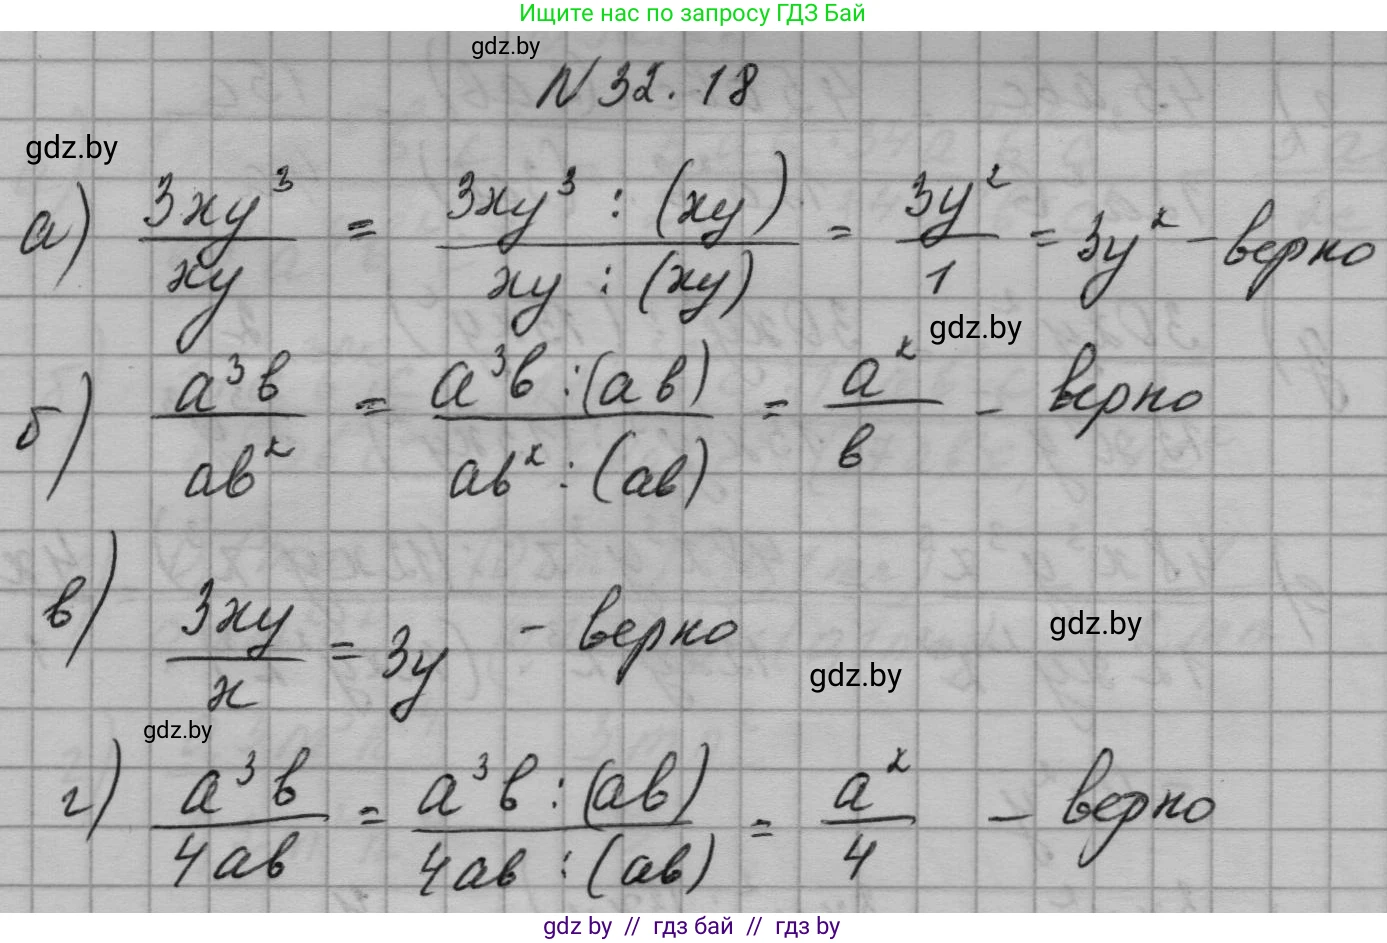 Ищите нас по запросу ГДЗ Бай
gdz.by
N 32.18
gdz.by
а) 3xy³/xy = 3xy³ : (xy)/xy : (xy) = 3y²/1 = 3y² - верно
gdz.by
б) a³b/ab² = a³b : (ab)/ab² : (ab) = a²/b - верно
в) 3xy/x = 3y - верно
gdz.by
gdz.by
gdz.by
г) a³b/4ab = a³b : (ab)/4ab : (ab) = a²/4 - верно
gdz.by // гдз бай // gdz.by